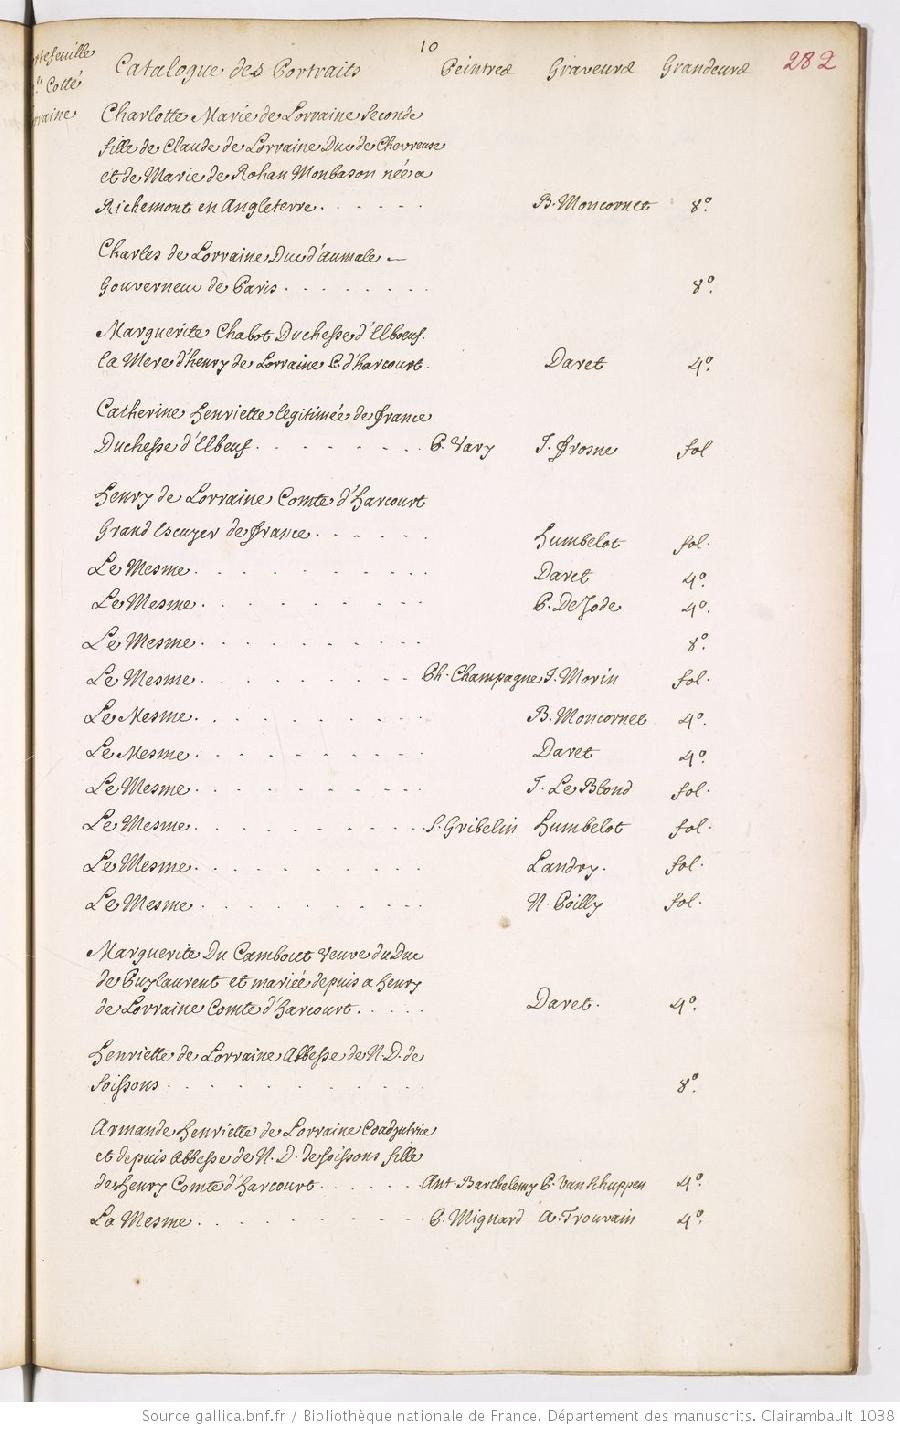 10
282
Catalogue des Portraits Peintres Graveurs Grandeurs
Charlotte Marie de Lorraine seconde
fille de Claude de Lorraine Duc de Chevreuse
et de Marie de Rohan Monbason née a
Richemont en Angleterre. B. Moncornet 8º.
Charles de Lorraine Duc d'aumale
Gouverneur de Paris 8º.
Marguerite Chabot Duchesse d'Elboeuf.
la Mere d'henry de Lorraine C. d'harcourt. Daret 4º.
Catherine henriette legitimée de france
Duchesse d'Elbeuf. P. Vary J. frosne fol
henry de Lorraine Comte d'harcourt
Grand Escuyer de france humbelot fol.
Le Mesme. Daret 4º.
Le Mesme. P. De Jode 4º.
Le Mesme. 8º.
Le Mesme. Ph. Champagne J. Morin fol.
Le Mesme. B. Moncornet 4º.
Le Mesme. Daret 4º.
Le Mesme. J. Le Blond fol.
Le Mesme. S. Gribelin humbelot fol.
Le Mesme. Landry. fol.
Le Mesme. N. Poilly fol.
Marguerite Du Cambout veuve du Duc
de Puylaurent et mariée depuis a henry
de Lorraine Comte d'harcourt. Daret. 4º.
henriette de Lorraine Abbesse de N. D. de
soissons 8º.
Armande henriette de Lorraine Coadjutrice
et depuis Abbesse de N. D. de soissons fille
de henry Comte d'harcourt Ant Barthelemy P. Van Schuppen 4º.
La Mesme. P. Mignard A. Trouvain 4º.
Source gallica.bnf.fr / Bibliothèque nationale de France. Département des manuscrits. Clairambault 1038